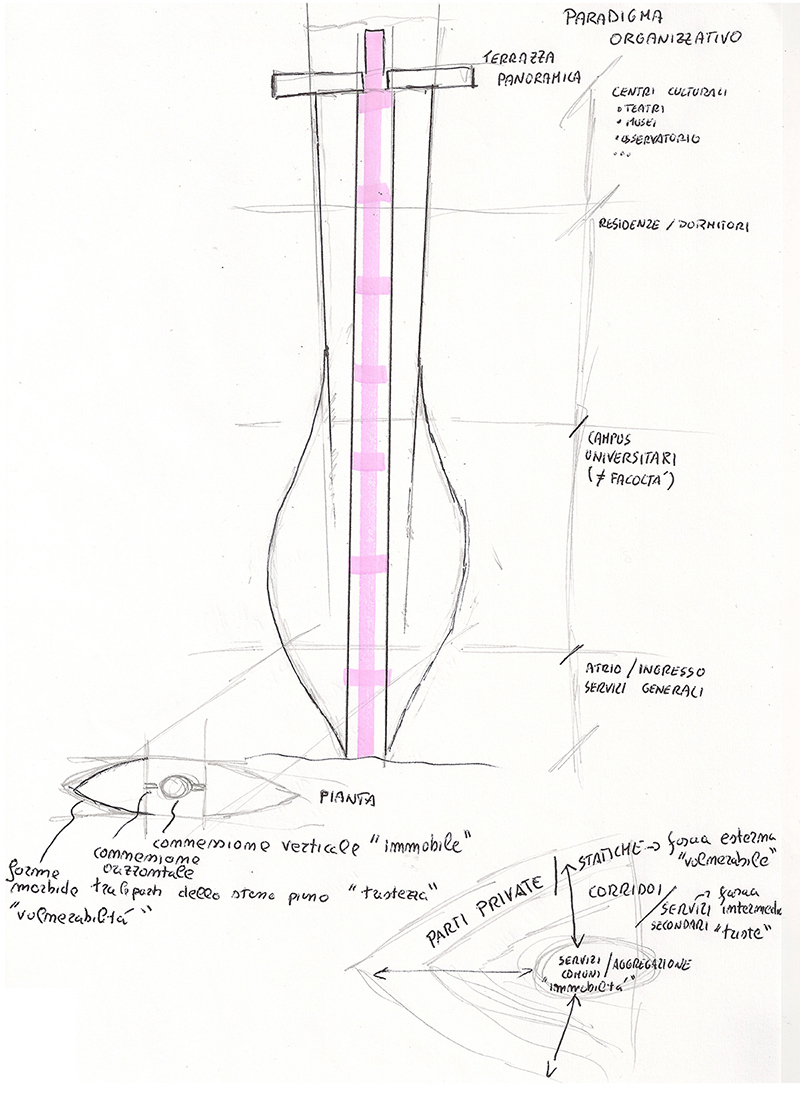 PARADIGMA
ORGANIZZATIVO
TERRAZZA
PANORAMICA
CENTRI CULTURALI
• TEATRI
• MUSEI
• OSSERVATORIO
...
RESIDENZE / DORMITORI
CAMPUS
UNIVERSITARI
(≠ FACOLTA')
ATRIO / INGRESSO
SERVIZI GENERALI
PIANTA
commessione verticale "immobile"
commessione
orizzontale
tra le parti dello stesso piano "tristezza"
forme
morbide
"vulnerabilità"
PARTI PRIVATE / STATICHE → fascia esterna
"vulnerabile"
CORRIDOI
/ SERVIZI → fascia
SECONDARI intermedia
"triste"
SERVIZI / AGGREGAZIONE
COMUNI
"immobilità"